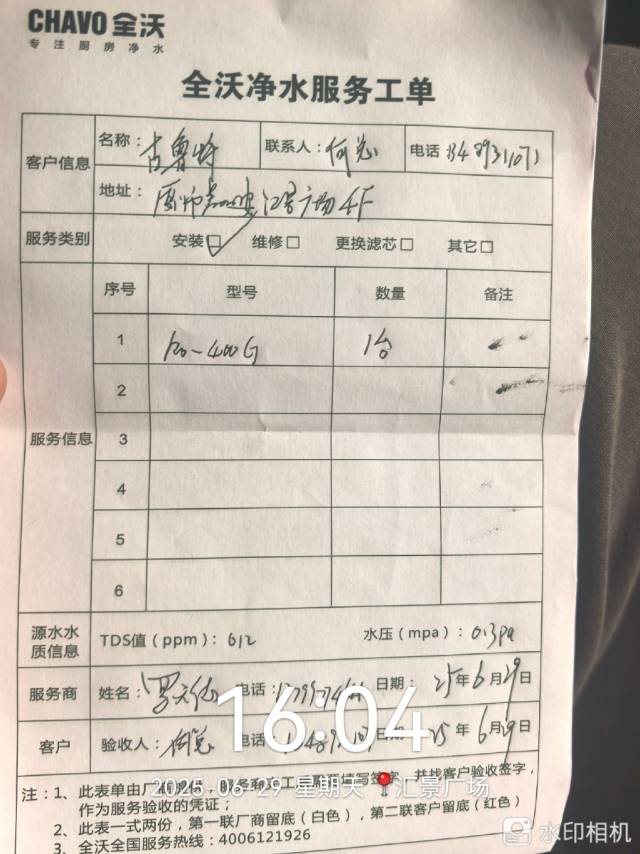 CHAVO 全沃
专注厨房净水
全沃净水服务工单
客户信息
名称： 古鲁特 联系人： 何总 电话
地址： 广场4F
服务类别 安装 维修 更换滤芯 其它
服务信息
序号 型号 数量 备注
1 -400G 1台
2
3
4
5
6
源水水质信息
TDS值（ppm）：612 水压（mpa）：0.3pa
服务商 姓名： 电话： 日期： 25年6月29日
客户 验收人： 何总 电话 日期： 25年6月29日
16:04
2025-06-29 星期天 汇景广场
注：1、此表单由厂 服务商 工 填写签字，并找客户验收签字，
作为服务验收的凭证；
2、此表一式两份，第一联厂商留底（白色），第二联客户留底（红色）
3、全沃全国服务热线：4006121926
水印相机